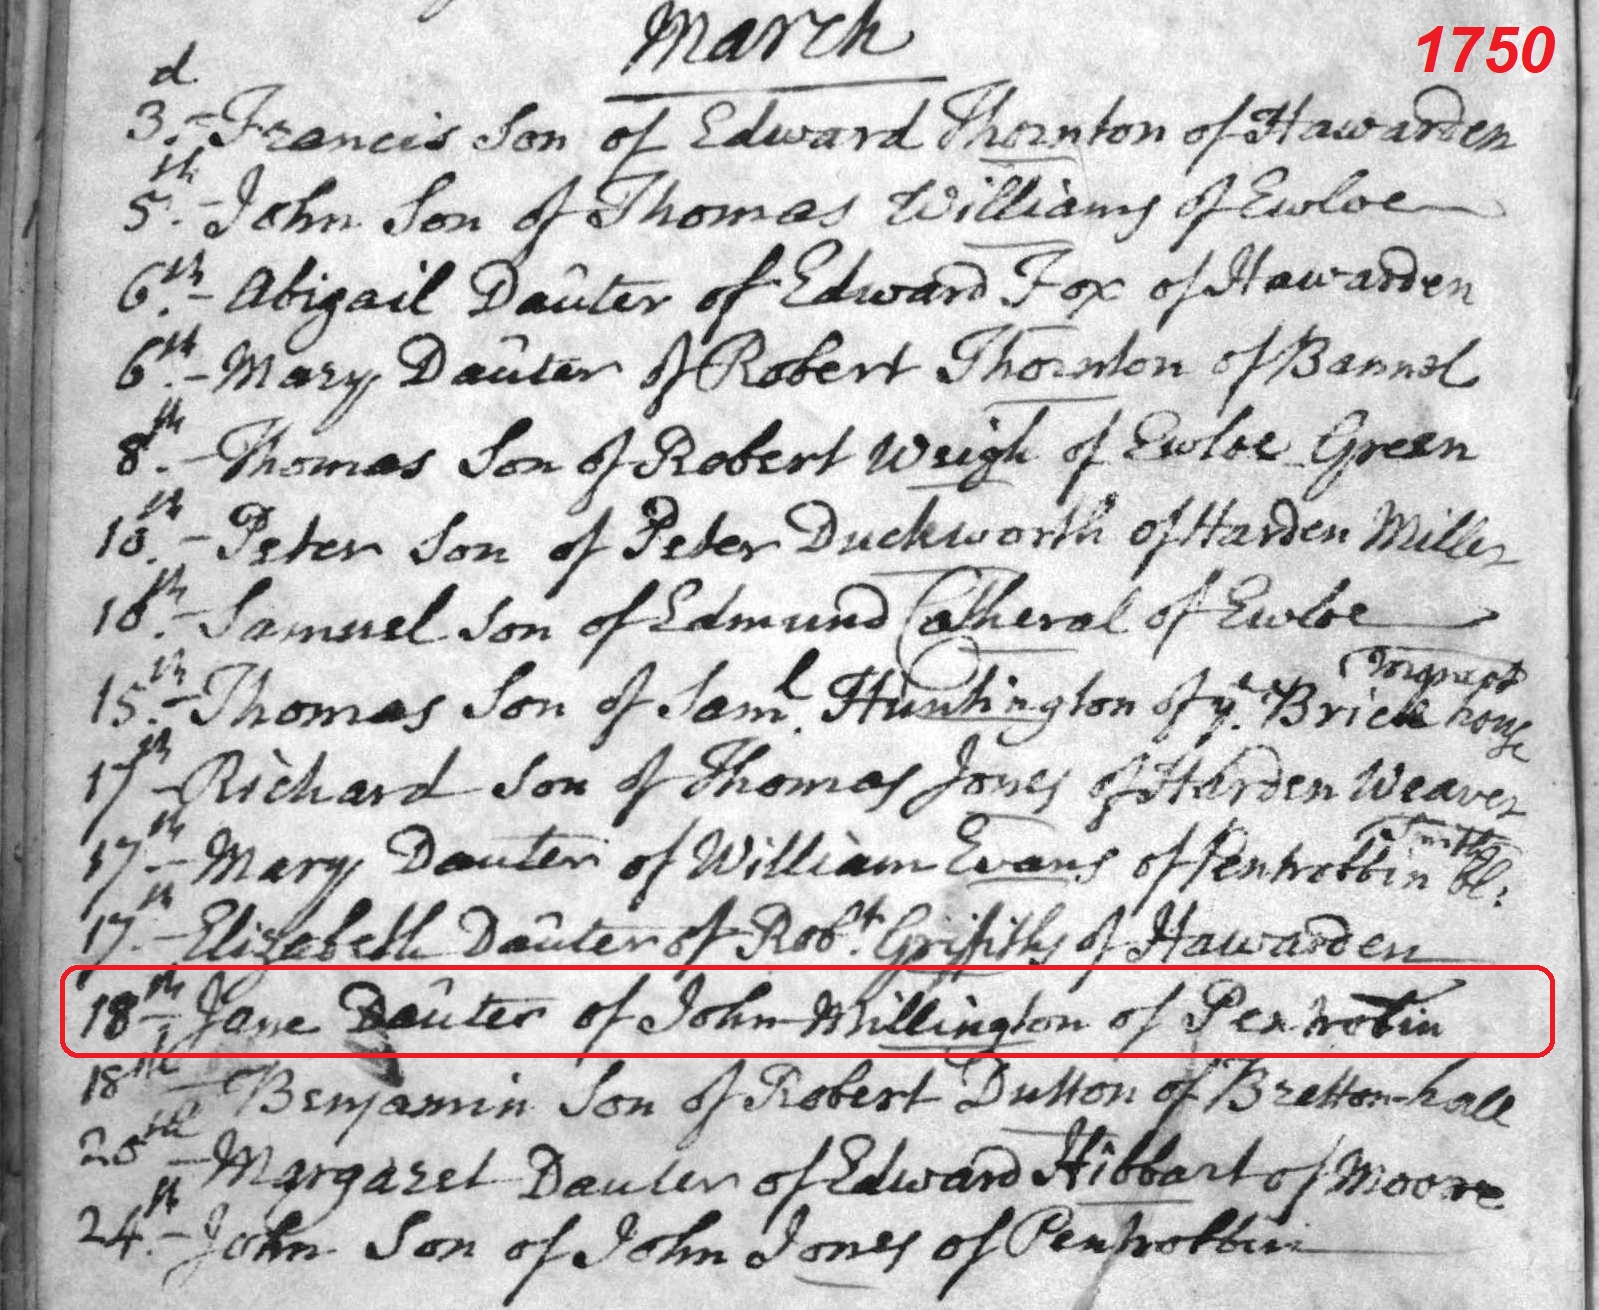 March
1750
3.d - Francis Son of Edward Thornton of Hawarden
5.th - John Son of Thomas Williams of Ewloe
6.th - Abigail Daûter of Edward Fox of Hawarden
6.th - Mary Daûter of Robert Thornton of Bannel
8.th - Thomas Son of Robert Weigh of Ewloe Green
10.th - Peter Son of Peter Duckworth of Harden Miller
10.th - Samuel Son of Edmund Catheral of Ewloe
15.th - Thomas Son of Sam.l Huntington of y.e Brick house
17th - Richard Son of Thomas Jones of Harden Weaver
17th - Mary Dauter of William Evans of Pentrobbin Bl. Smith
17.th - Elizabeth Daûter of Rob.t Griffiths of Hawarden
18th - Jane Daûter of John Millington of Pentrobin
18th - Benjamin Son of Robert Dutton of Bretton-hall
20th - Margaret Dauter of Edward Hibbart of Moore
24.th - John Son of John Jones of Pentrobbin